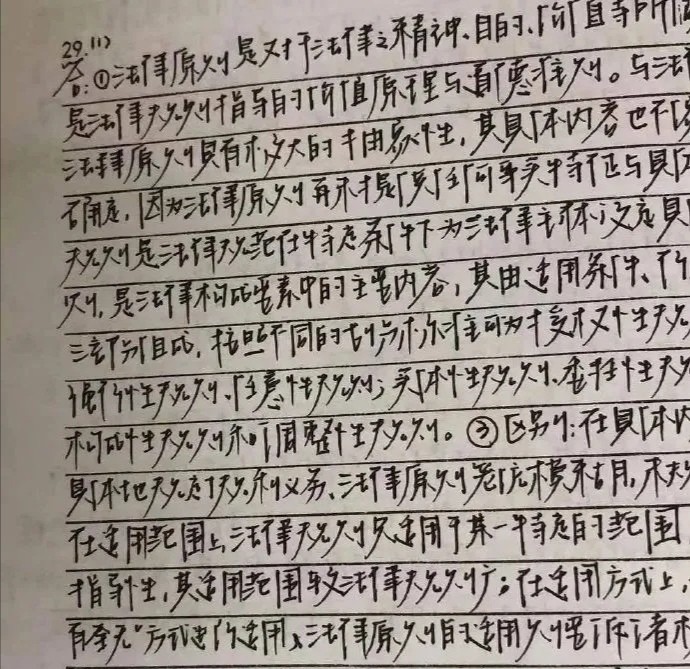 29.(1)
答:①法律原则是对于法律之精神、目的、价值等所
是法律规则指导的价值原理与道德准则。与法
法律原则具有较大的抽象性,其具体内容也不
确定,因为法律原则再不是具体可事实特征与具
规则是法律规范在特定条件下为法律主体设定具
则,是法律构成要素中的主要内容,其由适用条件、行
三部分组成,按照不同的划分标准可分为授权性规
强行性规则、任意性规则;实体性规则、委任性规
构成性规则和调整性规则。③区别:在具体内
具体地规定权利义务、法律原则笼统模糊,未
在适用范围上,法律规则只适用于某一特定的范围
指导性,其适用范围较法律规则广;在适用方式上,
有全无"方式适用,法律原则的适用则要